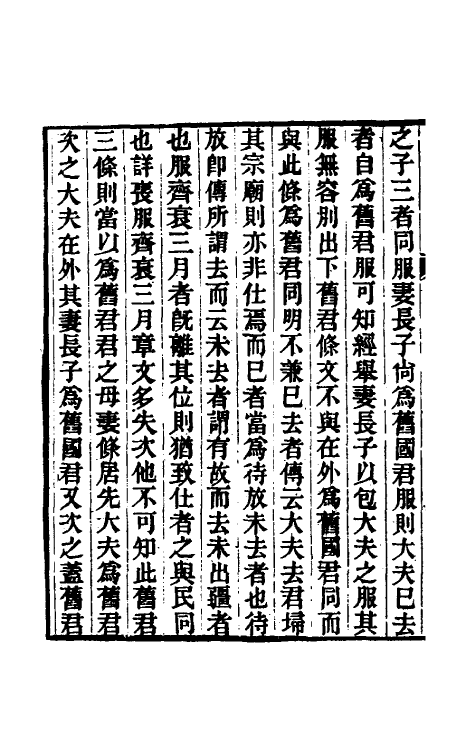 之子三者同服妻長子尙爲舊國君服則大夫已去
者自爲舊君服可知經舉妻長子以包大夫之服其
服無容別出下舊君條文不與在外爲舊國君同而
與此條爲舊君同明不兼已去者傳云大夫去君埽
其宗廟則亦非仕焉而已者當爲待放未去者也待
放卽傳所謂去而云未去者謂有故而去未出疆者
也服齊衰三月者旣離其位則猶致仕者之與民同
也詳喪服齊衰三月章文多失次他不可知此舊君
三條則當以爲舊君君之母妻條居先大夫爲舊君
次之大夫在外其妻長子爲舊國君又次之蓋舊君